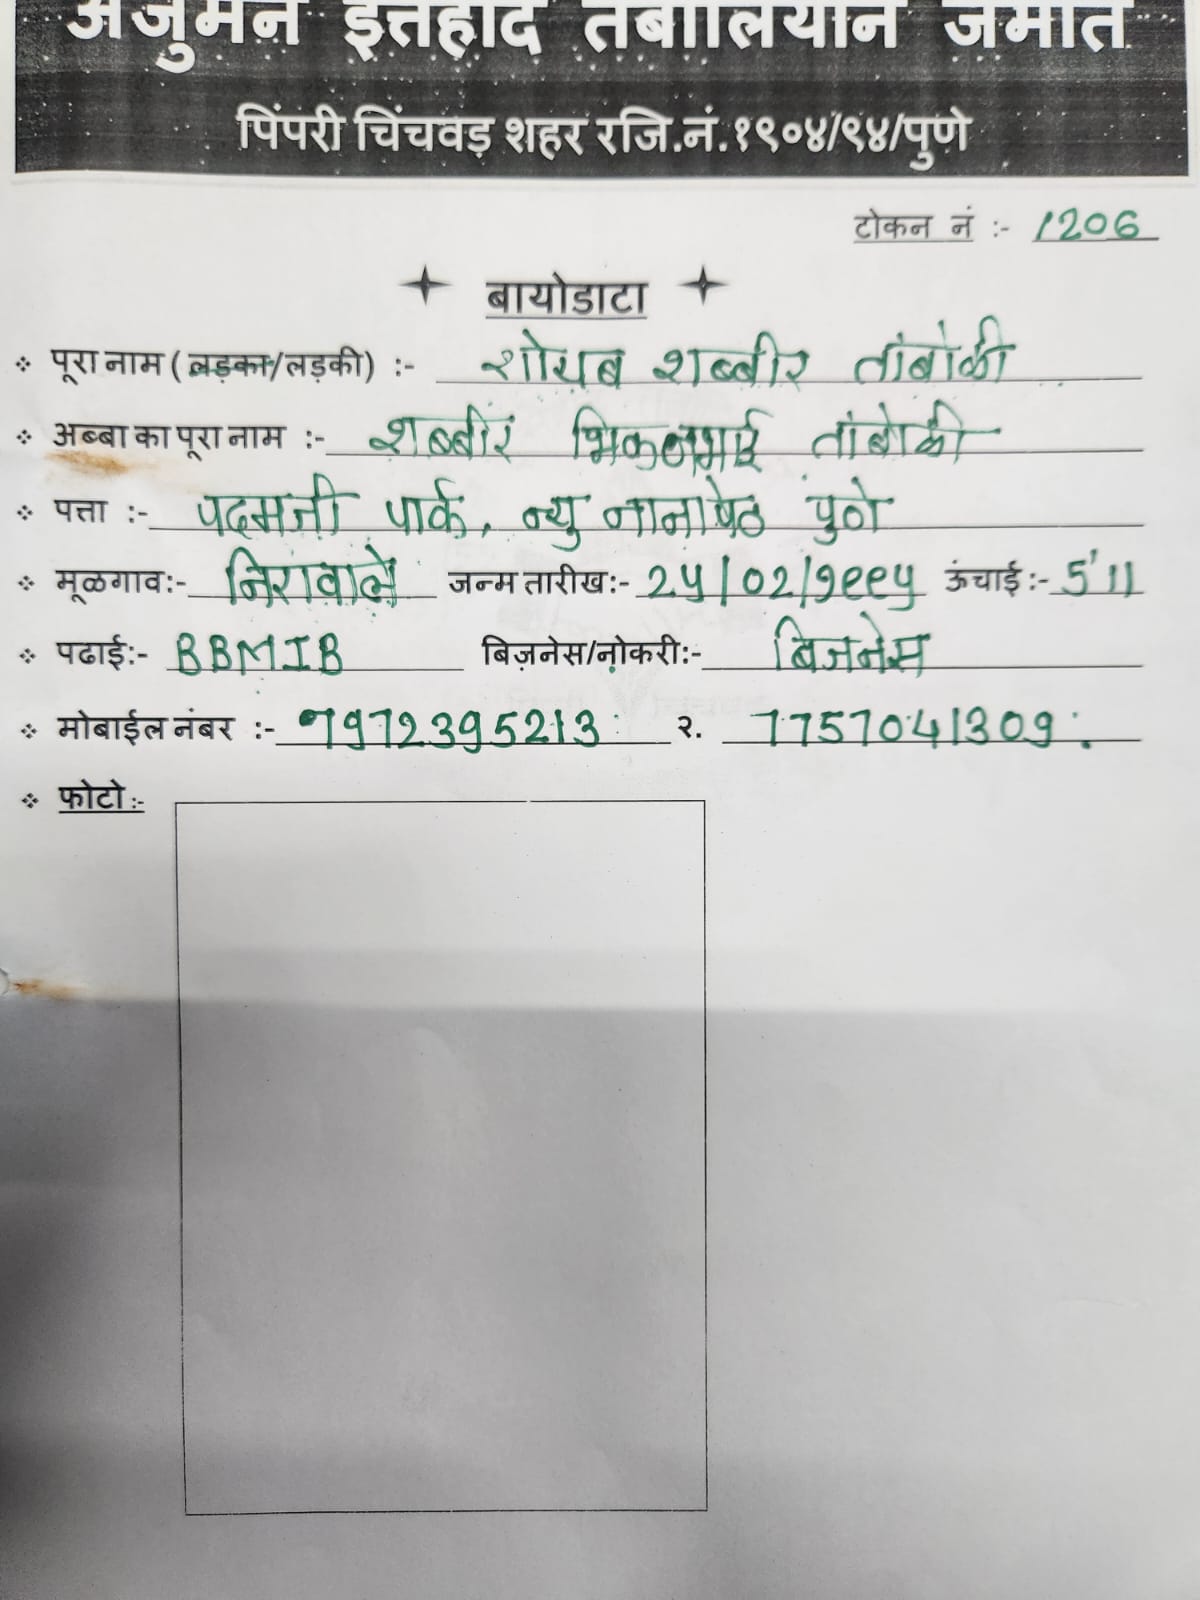 अंजुमन इत्तेहाद तंबोलियान जमात
पिंपरी चिंचवड़ शहर रजि.नं.१९०४/९४/पुणे
टोकन नं :- 1206
बायोडाटा
पूरा नाम ( लड़का/लड़की) :- शोयब शब्बीर तांबोळी
अब्बा का पूरा नाम :- शब्बीर भिकनभाई तांबोळी
पत्ता :- पदमजी पार्क, न्यु नानापेठ पुणे
मूळगाव:- निरावाले जन्म तारीख:- 2५/02/१९९५ ऊंचाई:- 5'11
पढाई:- BBMIB बिज़नेस/नोकरी:- बिजनेस
मोबाईल नंबर :- 7972395213 २. 7757041309
फोटो:-